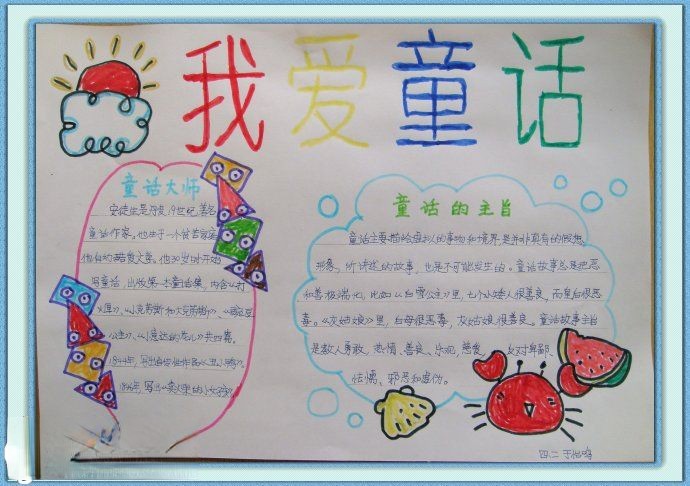 我爱童话
童话大师
安徒生是丹麦19世纪著名
童话作家。他生于一个贫苦家庭
他自幼酷爱文学。他30岁时开始
写童话，出版第一本童话集，内含《打
火匣》、《小克劳斯和大克劳斯》、《豌豆
公主》、《小意达的花儿》共四篇。
1844年，写出自传性作品《丑小鸭》。
1846年，写出《卖火柴的小女孩》。
童话的主旨
童话主要描绘虚拟的事物和境界，是并非真有的假想
形象，所讲述的故事，也是不可能发生的。童话故事总是把恶
和善极端化，比如《白雪公主》里，七个小矮人很善良，而皇后很恶
毒。《灰姑娘》里，后母很恶毒，灰姑娘很善良。童话故事主旨
是教人勇敢、热情、善良、乐观、慈爱，反对卑鄙、
怯懦、邪恶和虚伪。
四.二